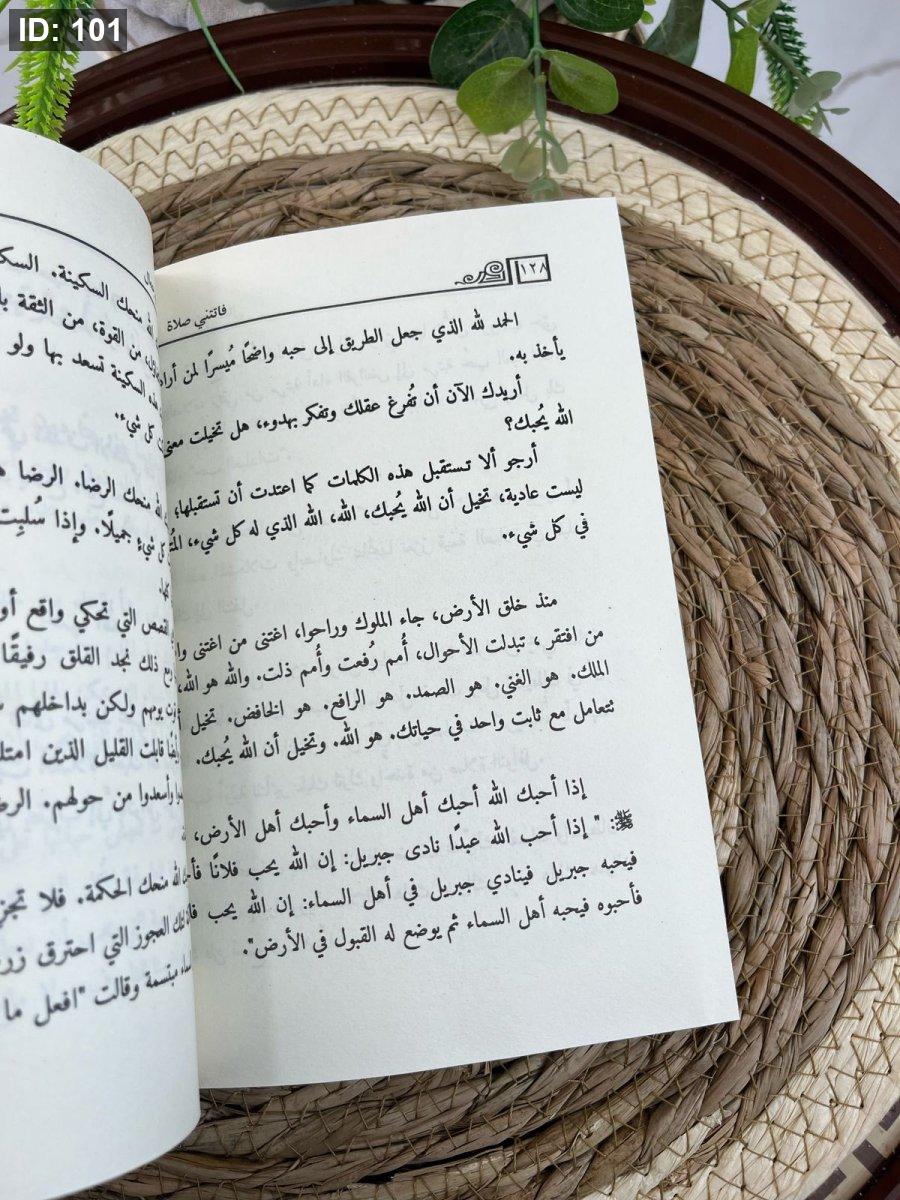 ID: 101
١٢٨
فاتتني صلاة
الحمد لله الذي جعل الطريق إلى حبه واضحًا مُيسرًا لمن أراد
يأخذ به.
أريدك الآن أن تُفرغ عقلك وتفكر بهدوء، هل تخيلت معنى
الله يُحبك؟
أرجو ألا تستقبل هذه الكلمات كما اعتدت أن تستقبلها،
ليست عادية، تخيل أن الله يُحبك، الله، الله الذي له كل شيء،
في كل شيء.
منذ خلق الأرض، جاء الملوك وراحوا، اغتنى من اغتنى
من افتقر، تبدلت الأحوال، أُمم رُفعت وأُمم ذلت. والله هو الله،
الملك. هو الغني. هو الصمد. هو الرافع. هو الخافض. تخيل
نتعامل مع ثابت واحد في حياتك. هو الله. وتخيل أن الله يُحبك.
إذا أحبك الله أحبك أهل السماء وأحبك أهل الأرض،
ﷺ: " إذا أحب الله عبدًا نادى جبريل: إن الله يحب فلانًا
فيحبه جبريل فينادي جبريل في أهل السماء: إن الله يحب
فأحبوه فيحبه أهل السماء ثم يوضع له القبول في الأرض".
منحك السكينة.
من القوة، من الثقة
السكينة تسعد بها ولو
كل شيء.
منحك الرضا. الرضا
كل شيءٍ جميلًا. وإذا سُلبت
القصص التي تحكي واقع
ذلك نجد القلق رفيقًا
يومهم ولكن بداخلهم
قابلت القليل الذين
وأسعدوا من حولهم.
الله منحك الحكمة. فلا
العجوز التي احترق
مبتسمة وقالت "افعل ما